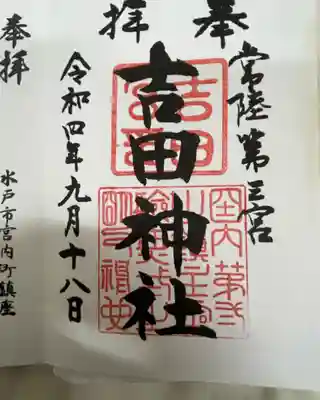 奉拝
常陸第三宮
吉田神社
令和四年九月十八日
水戸市宮内町鎮座
奉拝
吉田